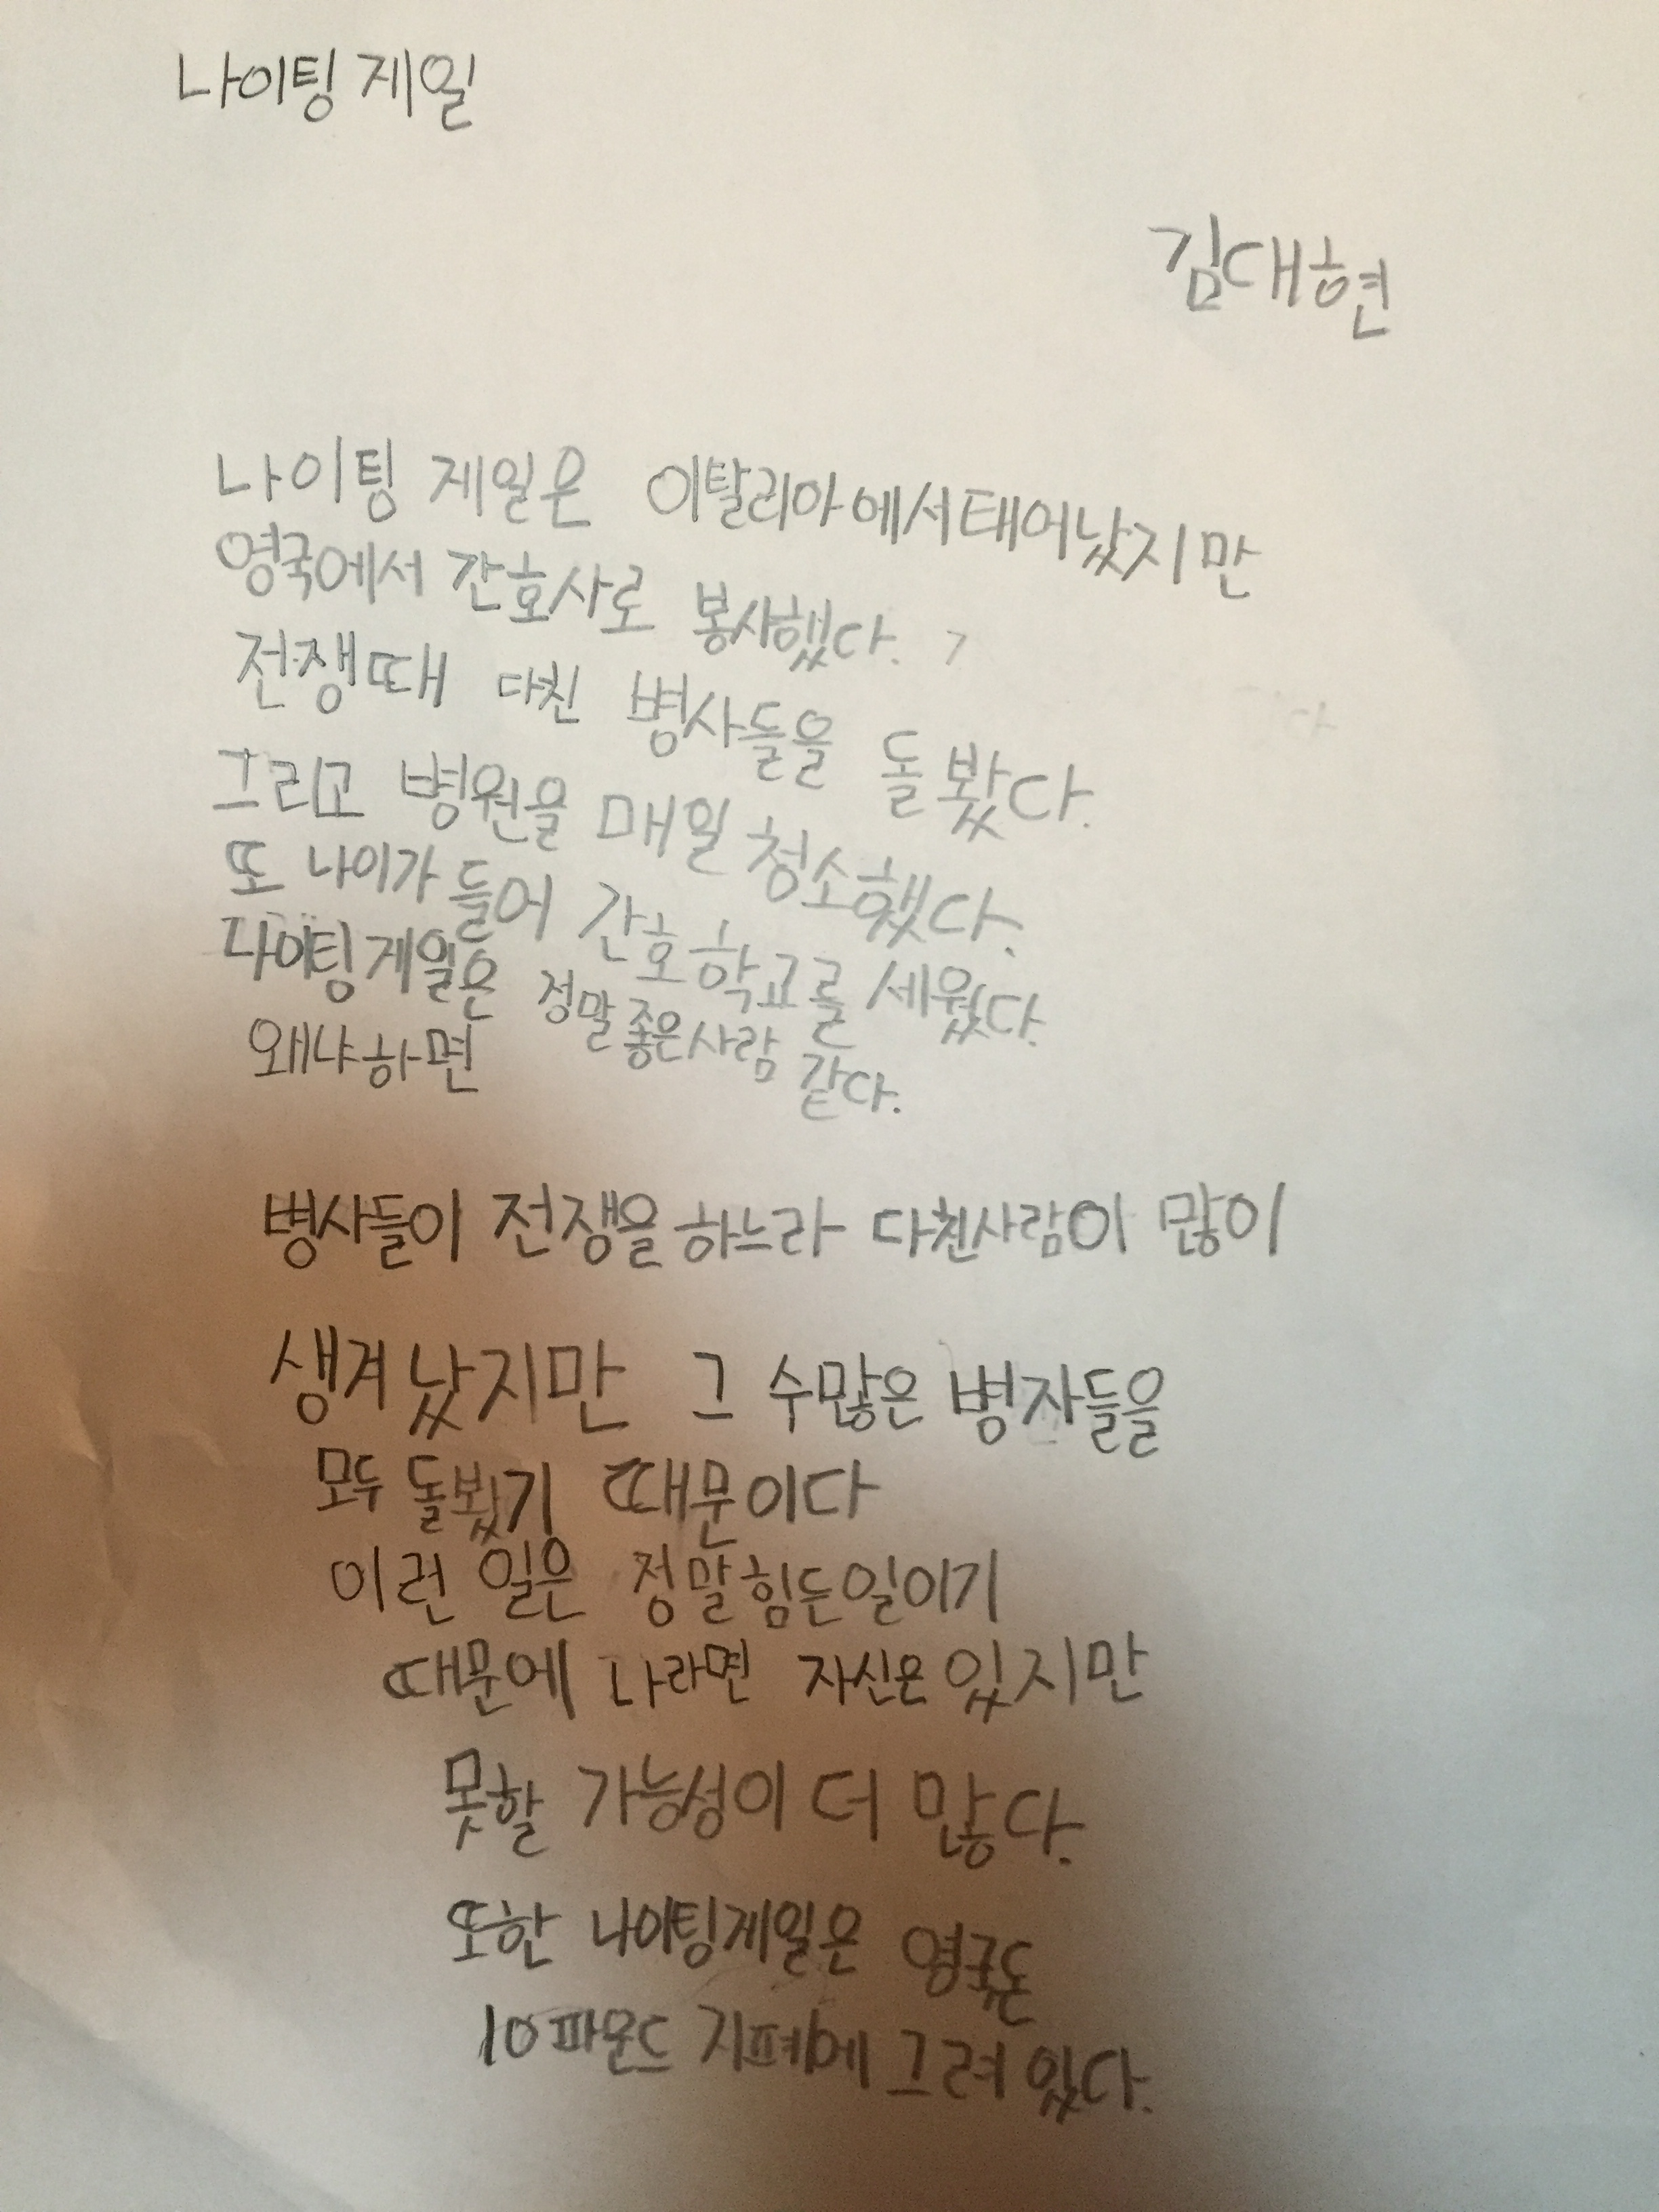 나이팅 게일
김대현
나이팅 게일은 이탈리아에서 태어났지만
영국에서 간호사로 봉사했다.
전쟁때 다친 병사들을 돌봤다.
그리고 병원을 매일 청소했다.
또 나이가 들어 간호학교를 세웠다.
나이팅게일은 정말 좋은사람 같다.
왜냐하면
병사들이 전쟁을 하느라 다친사람이 많이
생겨났지만 그 수많은 병자들을
모두 돌봤기 때문이다
이런 일은 정말힘든일이기
때문에 나라면 자신은 있지만
못할 가능성이 더 많다.
또한 나이팅게일은 영국돈
10파운드 지폐에 그려 있다.